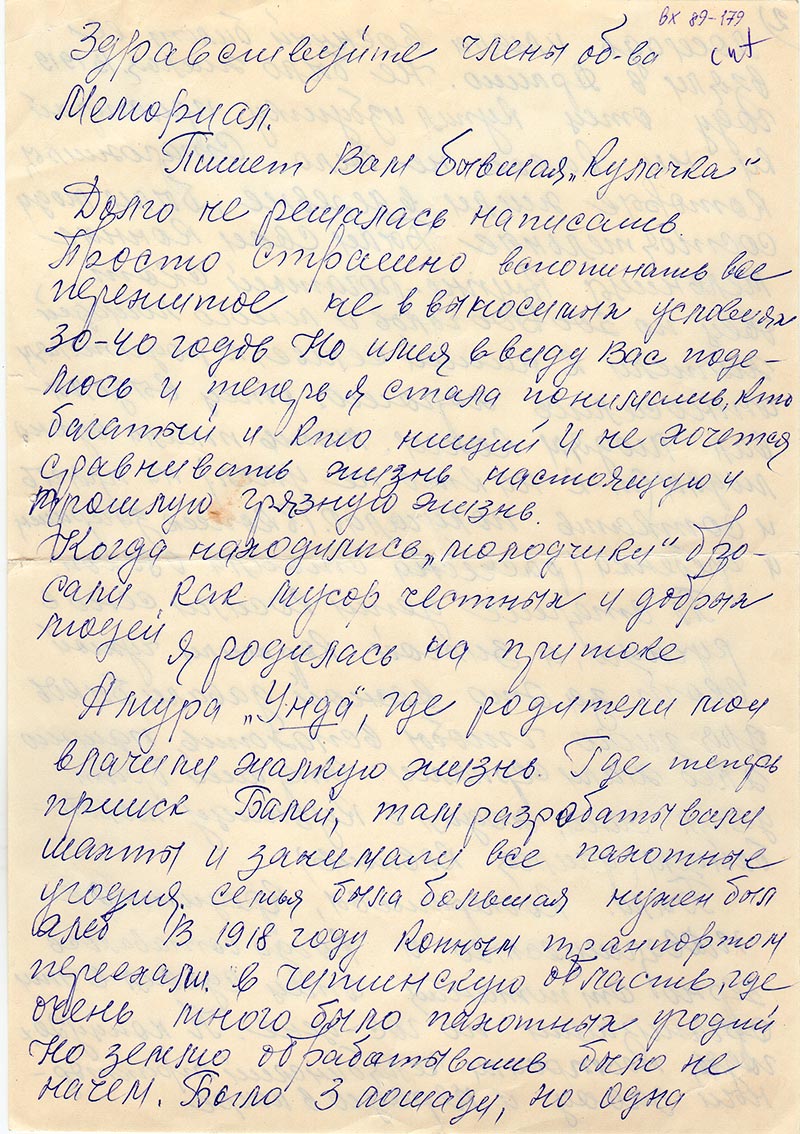 вх 89-179
Здравствуйте члены об-ва
Мемориал.
Пишет Вам бывшая „Кулачка"
Долго не решалась написать.
Просто, страшно вспоминать все
пережитое не в выносимых условиях
30-40 годов Но имея ввиду Вас поде-
люсь и теперь я стала понимать, кто
багатый и кто нищий И не хочется
сравнивать жизнь настоящую и
прошлую грязную жизнь.
Когда находились „молодчики" бро-
сали, как мусор честных и добрых
людей
я родилась на притоке
Амура „Унда", где родители мои
влачили жалкую жизнь. Где теперь
прииск Балей, там разробатывали
шахты и занимали все пахотные
угодия. семья была большая нужен был
хлеб В 1918 году конным транпортом
переехали в читинскую область, где
очень много было пахотных угодий
Но землю обрабатывать было не
начем. Было 3 лошади, но одна